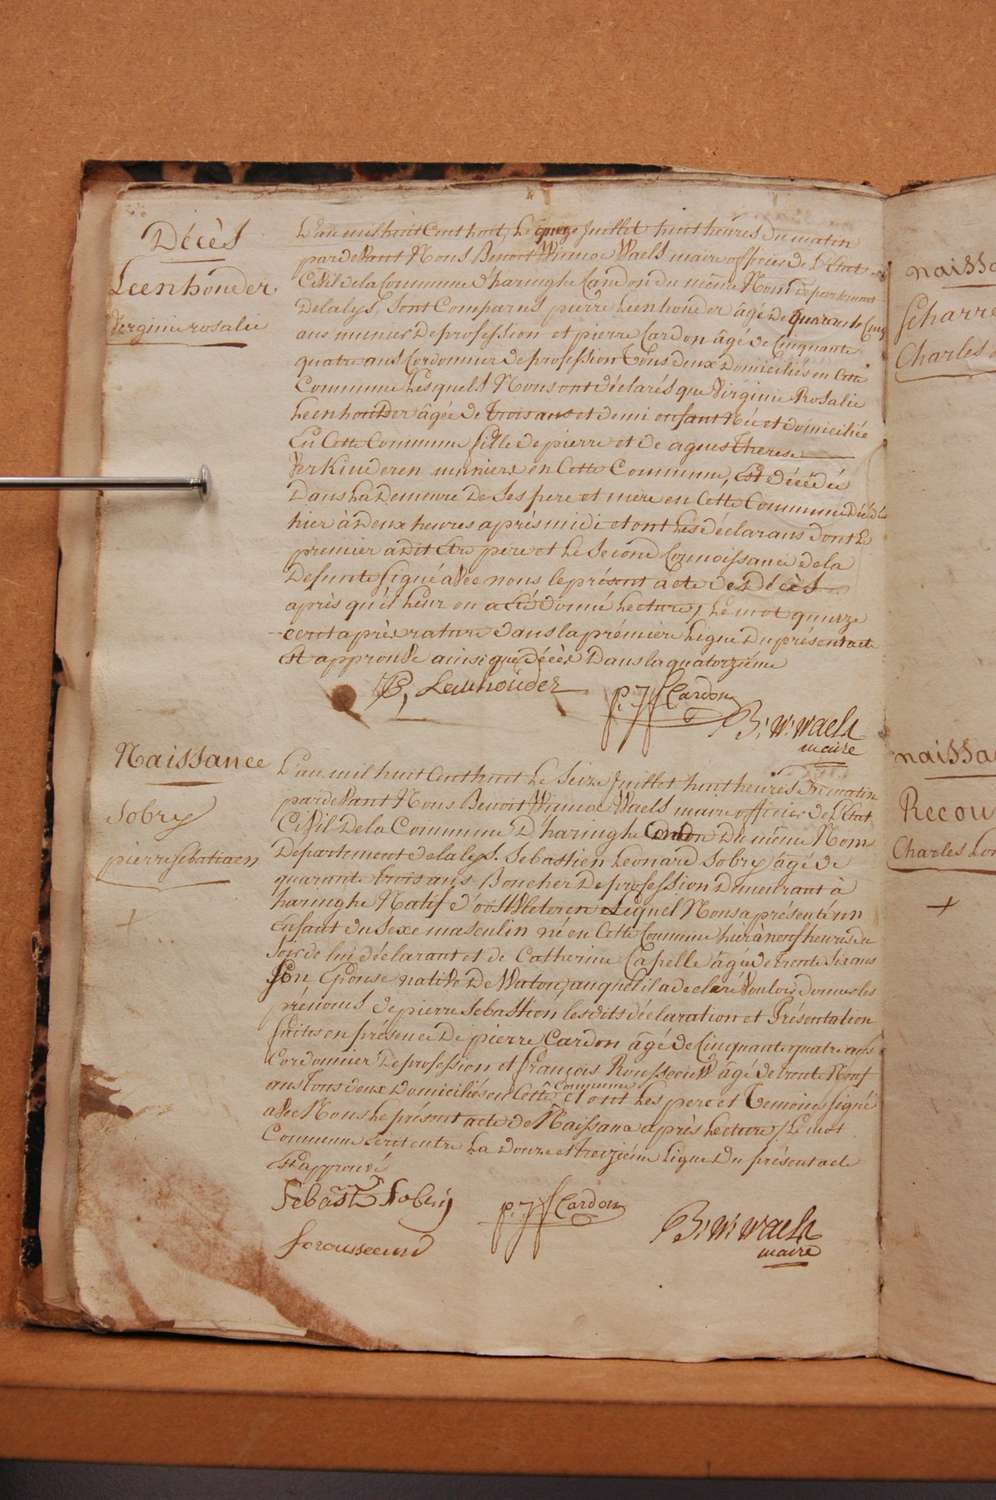 Décès
Leenhouder
Virginie rosalie
L'an mil huit Cent huit, le quinze Juillet huit heures du matin
pardevant Nous Benoit Winnoc Waels maire officier de l'Etat
Civil de la Commune d'haringhe Canton du même Nom departement
Delalys, Sont Comparus pierre Leenhouder âgé de quarante Cinq
ans munier De profession et pierre Cardon âgé de Cinquante
quatre ans Cordonnier de profession Tous deux Domiciliés en Cette
Commune Lesquels Nous ont déclarés que Virginie Rosalie
Leenhouder âgée de Trois ans et demi enfant Née et domiciliée
En Cette Commune fille de pierre et de agnes Therese
Verkinderen muniers en Cette Commune, est décédée
Dans La Demeure De Ses pere et mère en Cette Commune
hier à Deux heures après midi et ont Les déclarans dont Le
premier a Dit Etre père et Le Second Connoissance de la
Defunte Signé avec nous le présent acte de Décès
après qu'il Leur en a été donné Lecture / Le mot quinze
ecrit après rature dans la prémière Ligne Du présent acte
Est approuvé ainsi que Décès Dans la quatorzième
P, Leenhouder
P. J. Cardon
B. W. Waels
maire
Naissance
Sobry
pierre Sebastiaen
+
L'an mil huit Cent huit Le Seize Juillet huit heures Du matin
pardevant Nous Benoit Winnoc Waels maire officier de l'Etat
Civil De la Commune D'haringhe Canton Du même Nom
Departement delalys. Sebastien Leonard Sobry âgé de
quarante trois ans Boucher De profession Demeurant à
haringhe Natif d'oostvleteren Lequel Nous a présenté un
Enfant du Sexe masculin né en Cette Commune hier à neuf heures du
Soir de lui déclarant et de Catherine Capelle âgée de trente Six ans
Son Epouse native De Waton, auquel il a déclaré Vouloir donner les
prénoms de pierre Sebastien les dits déclaration et Présentation
faites en présence De pierre Cardon âgé de Cinquante quatre ans
Cordonnier De profession et françois Rousseeuw âgé de trente Neuf
ans Tous deux Domiciliés en Cette Commune et ont Les pere et Temoins signé
avec Nous Le présent acte de Naissance après Lecture / Le mot
Commune écrit entre La Douze et treizième Ligne Du présent acte
Est approuvé
Sebast. Sobrij
P. J. Cardon
B. W. Waels
maire
f rousseeuw
naissa
Scharre
Charles
naissa
Recou
Charles Lou
+